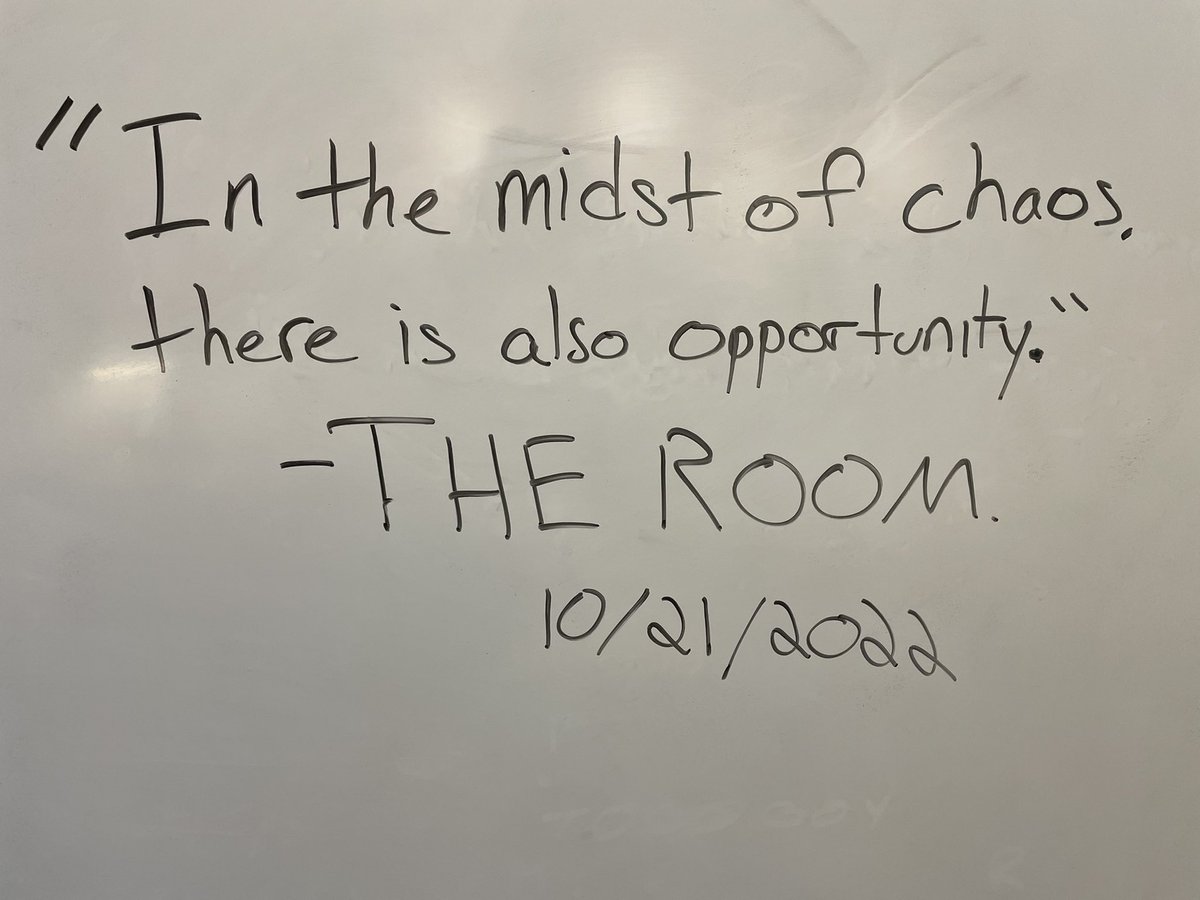 "In the midst of chaos,
there is also opportunity."
-THE ROOM.
10/21/2022